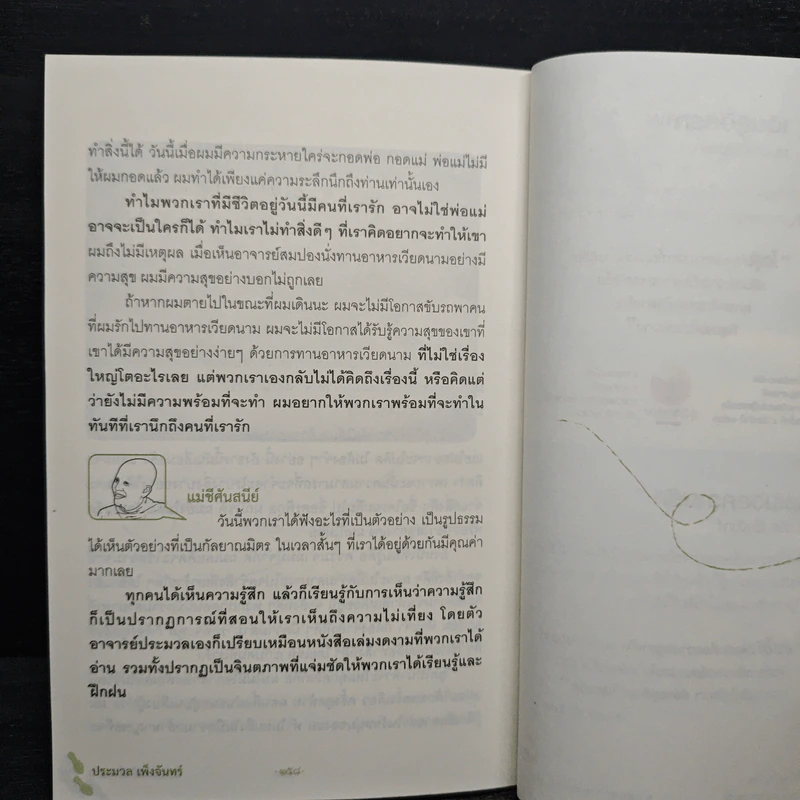 ทำสิ่งนี้ได้ วันนี้เมื่อผมมีความกระหายใคร่จะกอดพ่อ กอดแม่ พ่อแม่ไม่มี
ให้ผมกอดแล้ว ผมทำได้เพียงแค่ความระลึกนึกถึงท่านเท่านั้นเอง
ทำไมพวกเราที่มีชีวิตอยู่วันนี้มีคนที่เรารัก อาจไม่ใช่พ่อแม่
อาจจะเป็นใครก็ได้ ทำไมเราไม่ทำสิ่งดีๆ ที่เราคิดอยากจะทำให้เขา
ผมถึงไม่มีเหตุผล เมื่อเห็นอาจารย์สมปองนั่งทานอาหารเวียดนามอย่างมี
ความสุข ผมมีความสุขอย่างบอกไม่ถูกเลย
ถ้าหากผมตายไปในขณะที่ผมเดินนะ ผมจะไม่มีโอกาสขับรถพาคน
ที่ผมรักไปทานอาหารเวียดนาม ผมจะไม่มีโอกาสได้รับรู้ความสุขของเขาที่
เขาได้มีความสุขอย่างง่ายๆ ด้วยการทานอาหารเวียดนาม ที่ไม่ใช่เรื่อง
ใหญ่โตอะไรเลย แต่พวกเราเองกลับไม่ได้คิดถึงเรื่องนี้ หรือคิดแต่
ว่ายังไม่มีความพร้อมที่จะทำ ผมอยากให้พวกเราพร้อมที่จะทำใน
ทันทีที่เรานึกถึงคนที่เรารัก
แม่ชีศันสนีย์
วันนี้พวกเราได้ฟังอะไรที่เป็นตัวอย่าง เป็นรูปธรรม
ได้เห็นตัวอย่างที่เป็นกัลยาณมิตร ในเวลาสั้นๆ ที่เราได้อยู่ด้วยกันมีคุณค่า
มากเลย
ทุกคนได้เห็นความรู้สึก แล้วก็เรียนรู้กับการเห็นว่าความรู้สึก
ก็เป็นปรากฏการณ์ที่สอนให้เราเห็นถึงความไม่เที่ยง โดยตัว
อาจารย์ประมวลเองก็เปรียบเหมือนหนังสือเล่มงดงามที่พวกเราได้
อ่าน รวมทั้งปรากฏเป็นจินตภาพที่แจ่มชัดให้พวกเราได้เรียนรู้และ
ฝึกฝน
ประมวล เพ็งจันทร์
๑๕๘